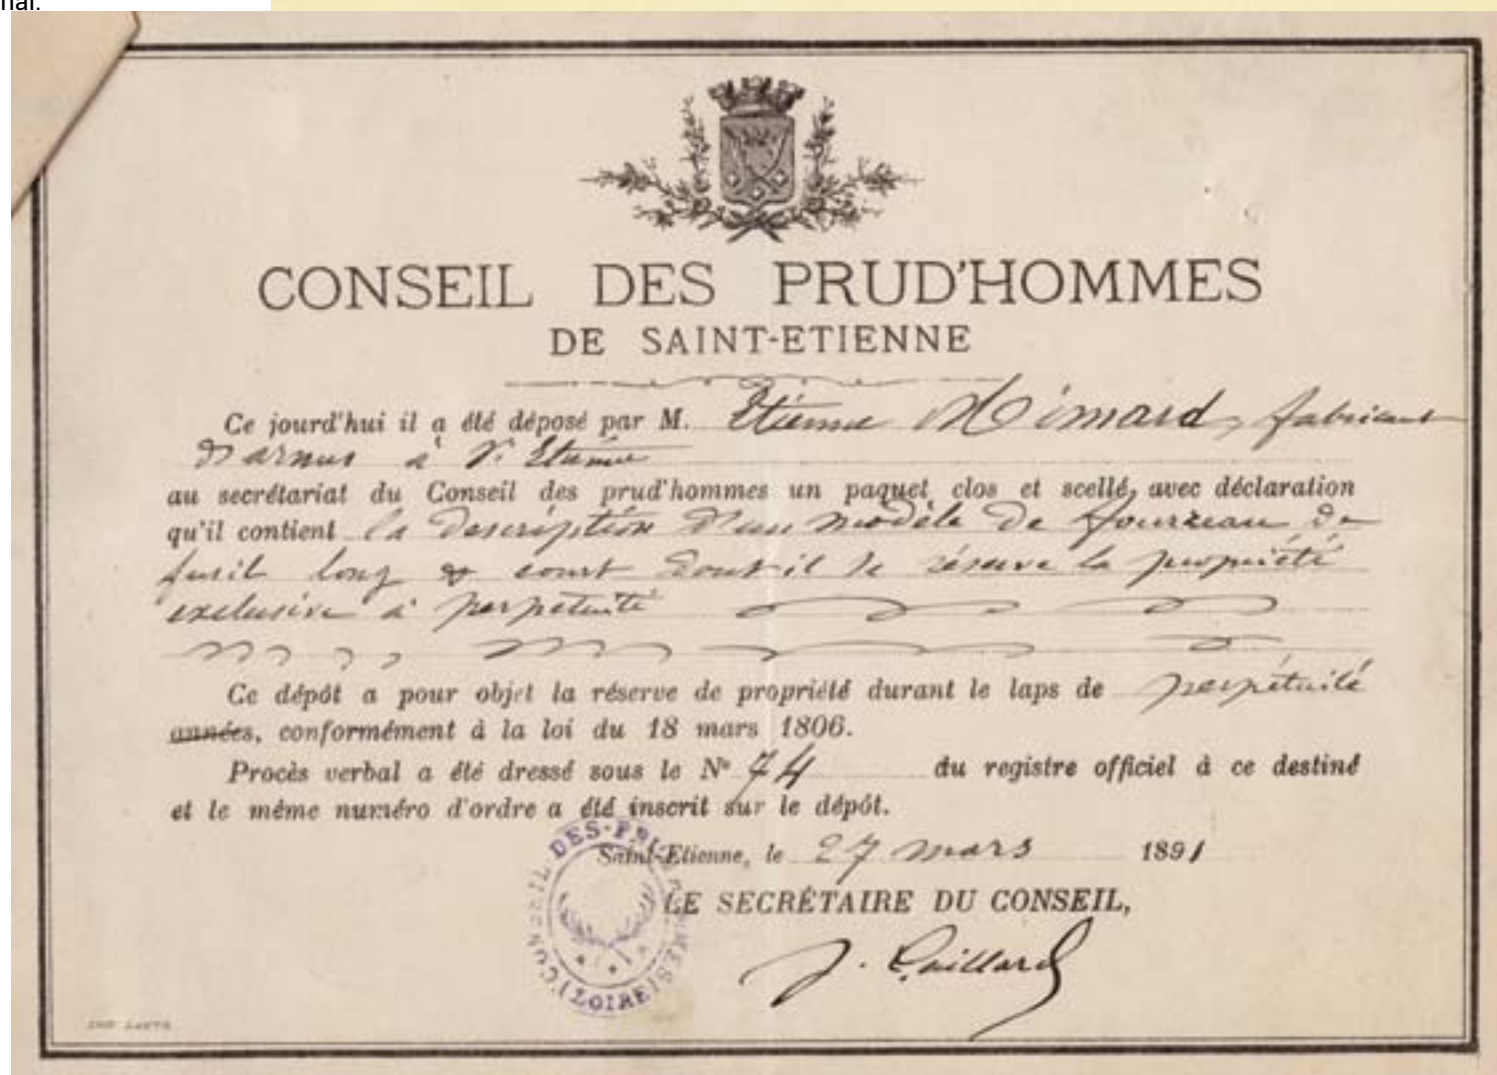 nal.
CONSEIL DES PRUD'HOMMES
DE SAINT-ETIENNE
Ce jourd'hui il a été déposé par M. Etienne Mimard, fabricant
d'armes à St Etienne
au secrétariat du Conseil des prud'hommes un paquet clos et scellé, avec déclaration
qu'il contient la description d'un modèle de fourreau de
fusil long & court dont il se réserve la propriété
exclusive à perpétuité
Ce dépôt a pour objet la réserve de propriété durant le laps de perpétuité
années, conformément à la loi du 18 mars 1806.
Procès verbal a été dressé sous le N° 74 du registre officiel à ce destiné
et le même numéro d'ordre a été inscrit sur le dépôt.
Saint-Etienne, le 27 mars 1891
LE SECRÉTAIRE DU CONSEIL,
CONSEIL DES PRUD'HOMMES
(LOIRE)